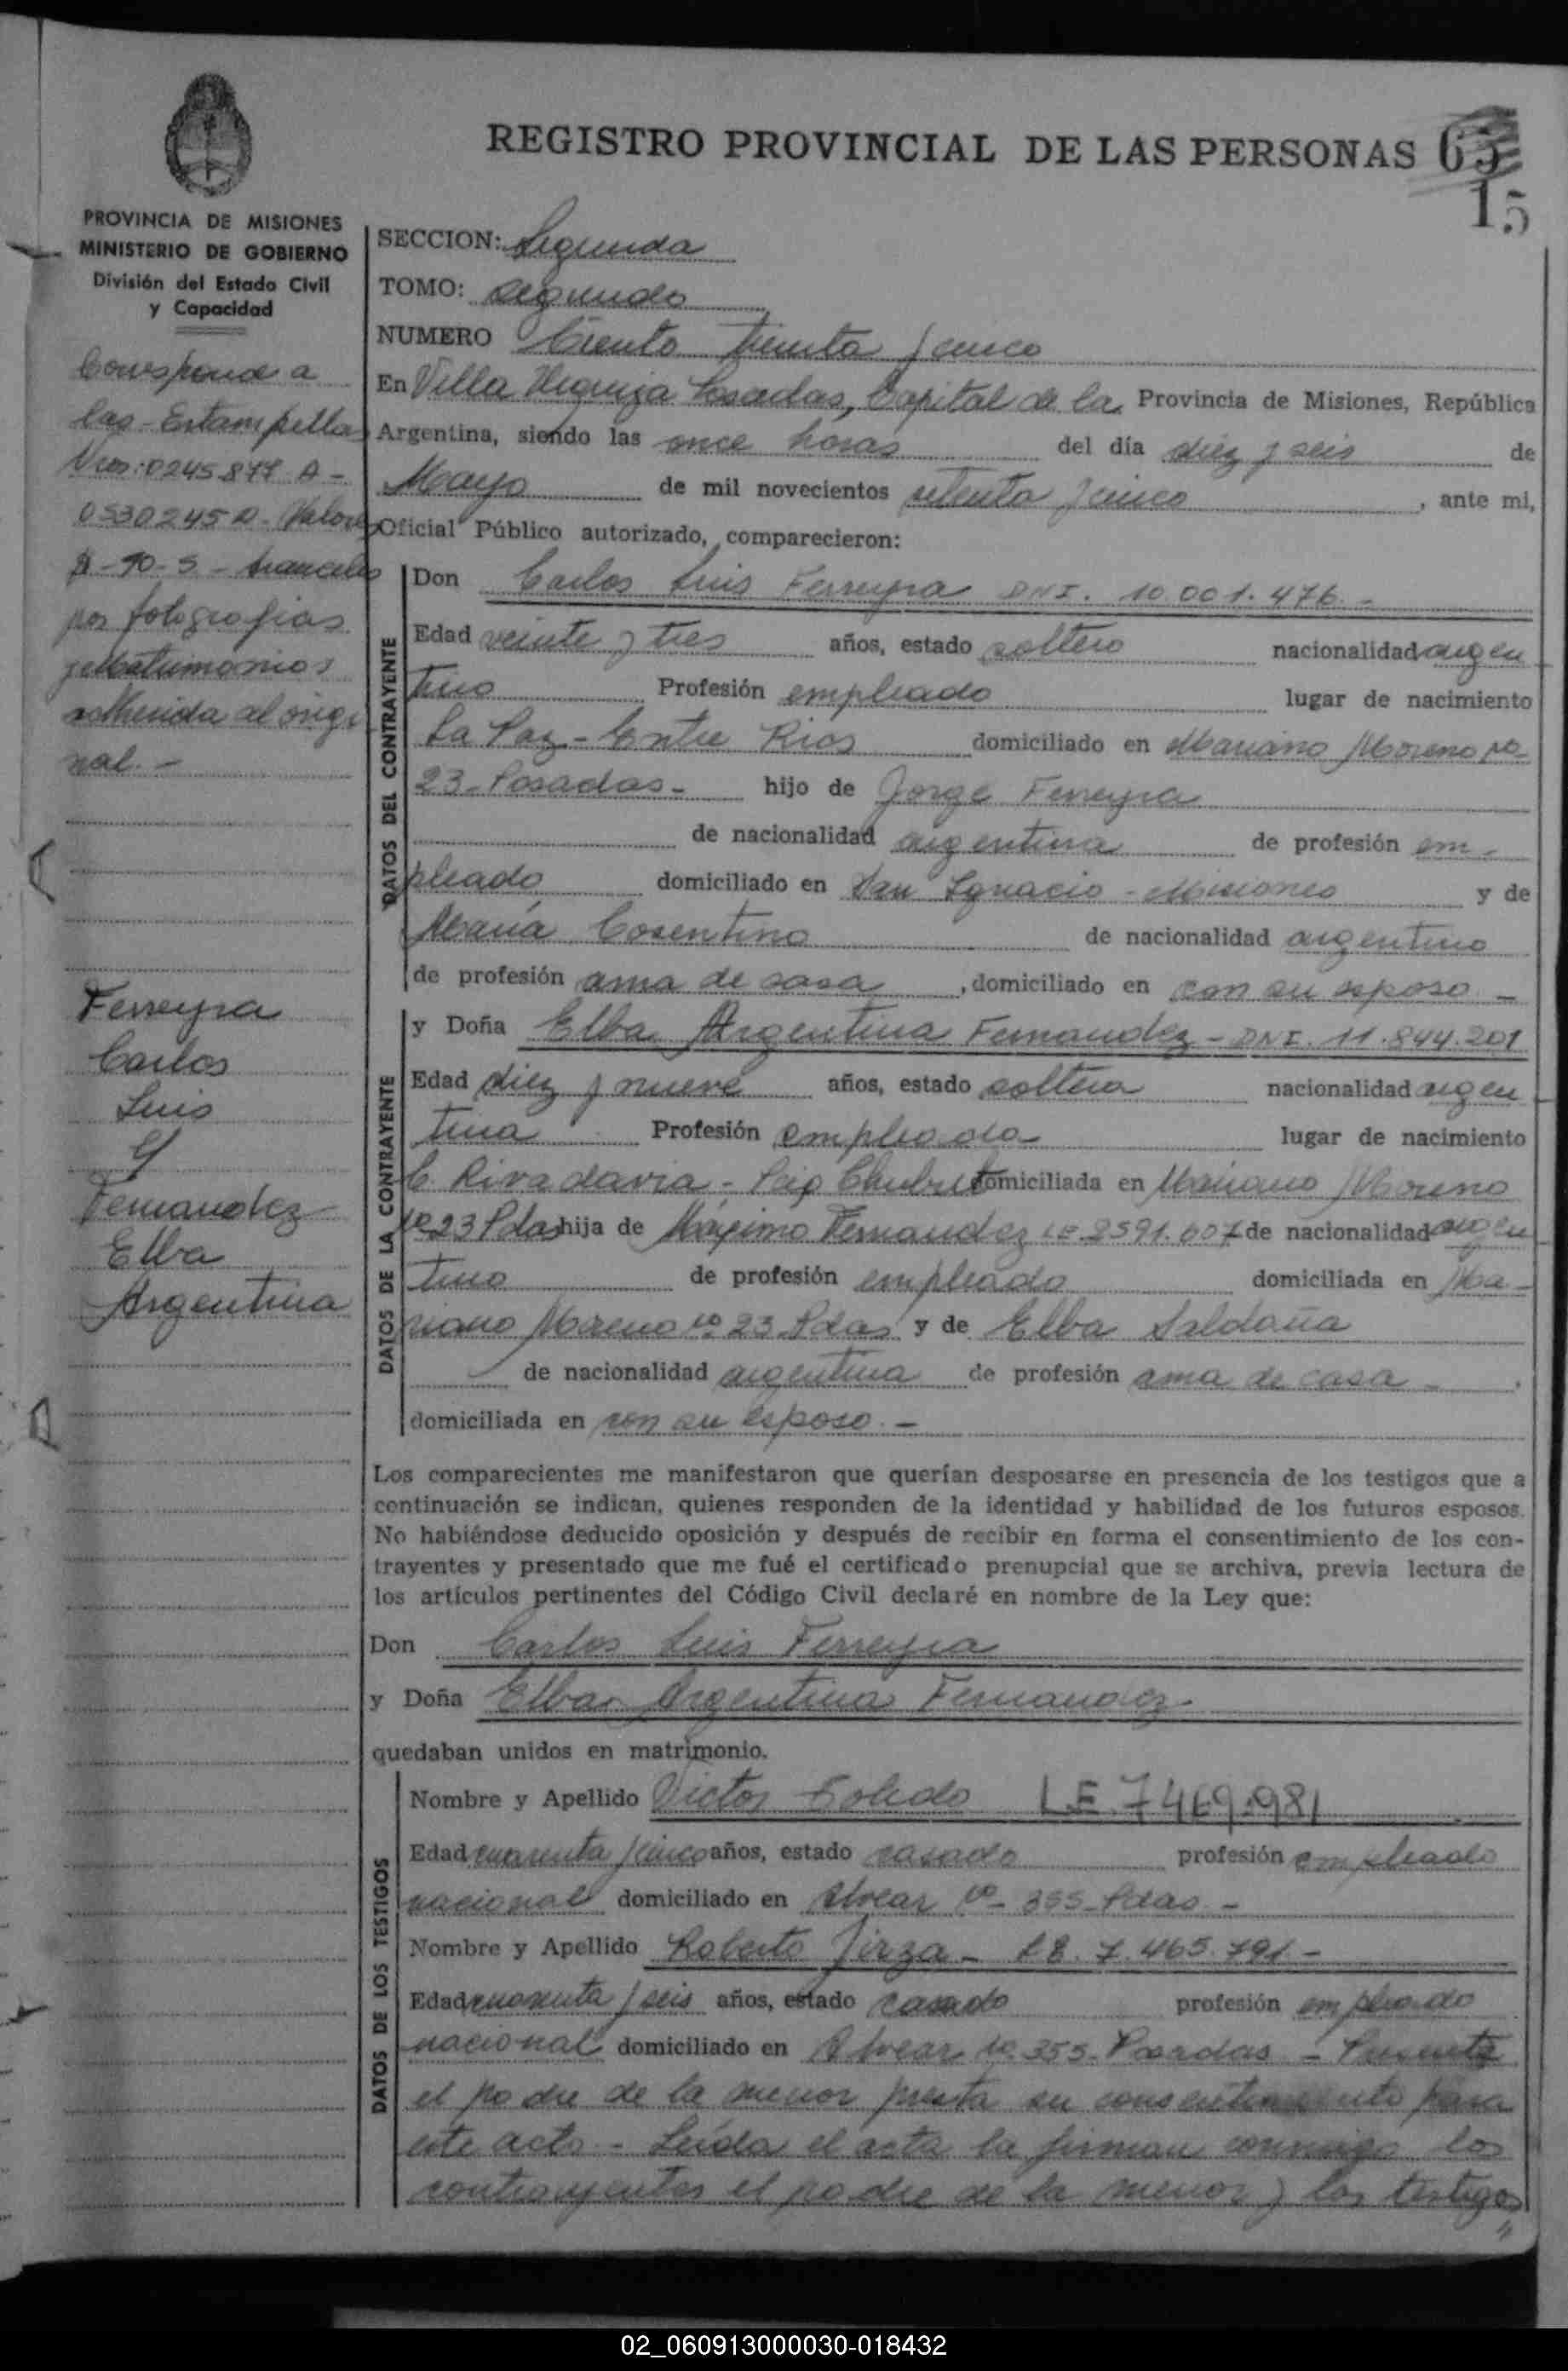 REGISTRO PROVINCIAL DE LAS PERSONAS 65
15
PROVINCIA DE MISIONES
MINISTERIO DE GOBIERNO
División del Estado Civil
y Capacidad
Corresponde a
las - Estampillas
Nros: 0245877 A -
0530245 A - Valores
- 90 - 5 - aranceles
por fotografias
y Matrimonios
adherida al origi
nal. -
Ferreyra
Carlos
Luis
y
Fernandez
Elba
Argentina
SECCION: Segunda
TOMO: Segundo
NUMERO Ciento treinta y cinco
En Villa Urquiza Posadas, Capital de la Provincia de Misiones, República
Argentina, siendo las once horas del día diez y seis de
Mayo de mil novecientos setenta y cinco, ante mi,
Oficial Público autorizado, comparecieron:
DATOS DEL CONTRAYENTE
Don Carlos Luis Ferreyra DNI. 10.001.476 -
Edad veinte y tres años, estado soltero nacionalidad argen
tino Profesión empleado lugar de nacimiento
La Paz - Entre Rios domiciliado en Mariano Moreno no
23 - Posadas - hijo de Jorge Ferreyra
de nacionalidad argentina de profesión em-
pleado domiciliado en San Ignacio - Misiones y de
María Cosentino de nacionalidad argentino
de profesión ama de casa, domiciliado en con su esposo -
DATOS DE LA CONTRAYENTE
y Doña Elba Argentina Fernandez - DNI. 11.844.201
Edad diez y nueve años, estado soltera nacionalidad argen
tina Profesión empleada lugar de nacimiento
C. Rivadavia - Chubut domiciliada en Mariano Moreno
no 23 Pdas hija de Máximo Fernandez LE 2591.607 de nacionalidad argen
tino de profesión empleado domiciliada en Ma-
riano Moreno no 23 Pdas y de Elba Saldaña
de nacionalidad argentina de profesión ama de casa -,
domiciliada en con su esposo. -
Los comparecientes me manifestaron que querían desposarse en presencia de los testigos que a
continuación se indican, quienes responden de la identidad y habilidad de los futuros esposos.
No habiéndose deducido oposición y después de recibir en forma el consentimiento de los con-
trayentes y presentado que me fué el certificado prenupcial que se archiva, previa lectura de
los artículos pertinentes del Código Civil declaré en nombre de la Ley que:
Don Carlos Luis Ferreyra
y Doña Elba Argentina Fernandez
quedaban unidos en matrimonio.
DATOS DE LOS TESTIGOS
Nombre y Apellido Victor Toledo LE. 7469.981
Edad cuarenta y cinco años, estado casado profesión empleado
nacional domiciliado en Alvear no - 355 - Pdas. -
Nombre y Apellido Roberto Jirza - LE. 7.465.791 -
Edad cuarenta y seis años, estado casado profesión empleado
nacional domiciliado en Alvear no. 355 - Posadas - Presente
el padre de la menor presta su consentimiento para
este acto - Leída el acta la firman conmigo los
contrayentes el padre de la menor y los testigos
02_060913000030-018432